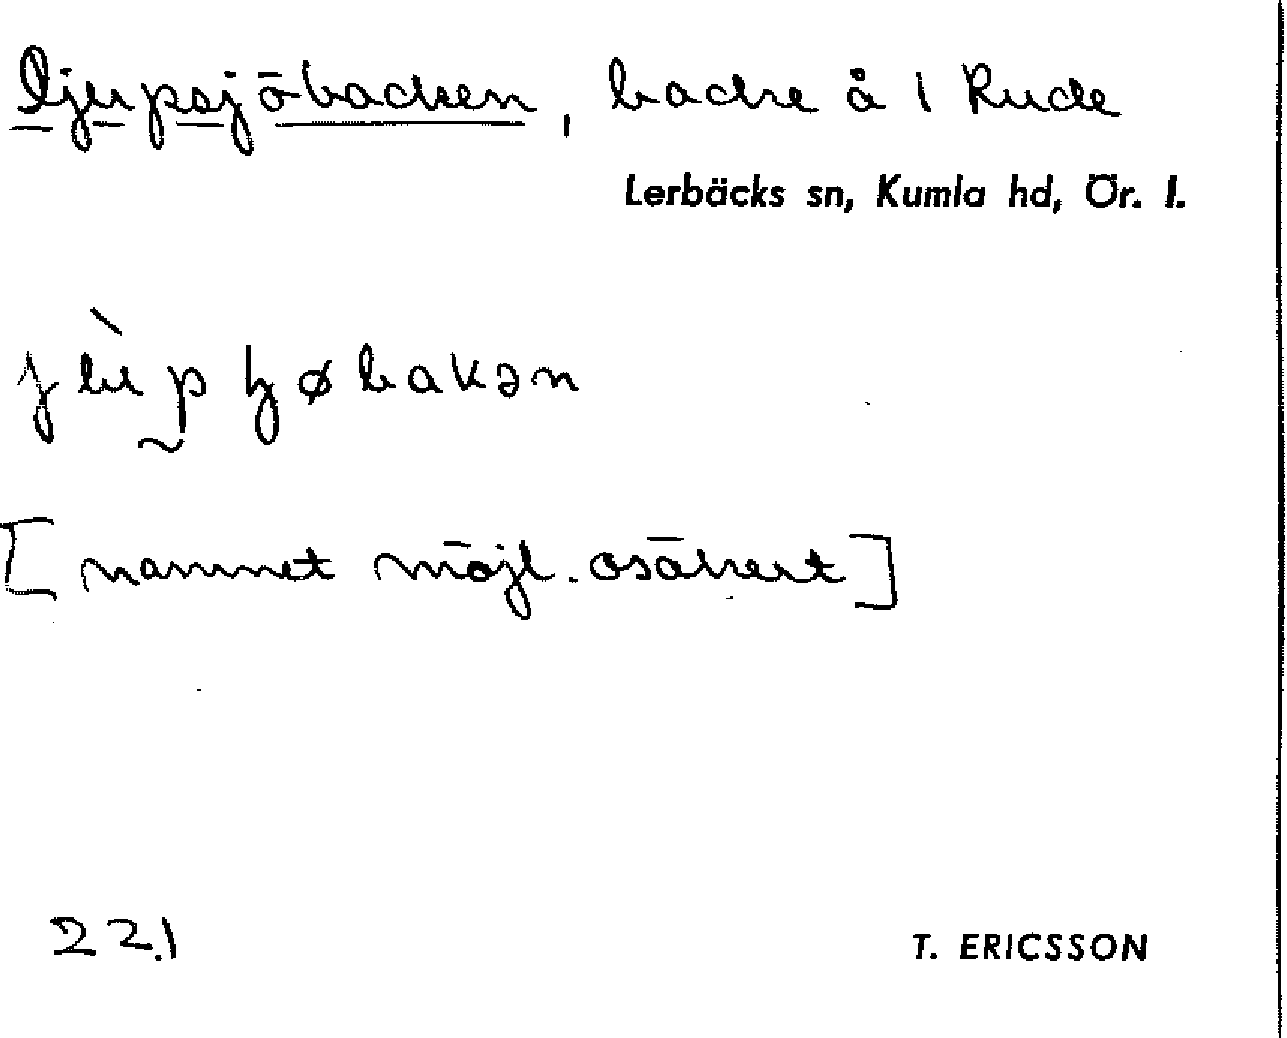 Ljupsjöbacken, backe å 1 Rude
Lerbäcks sn, Kumla hd, Ör. l.
[namnet möjl. osäkert]
22.1
T. ERICSSON